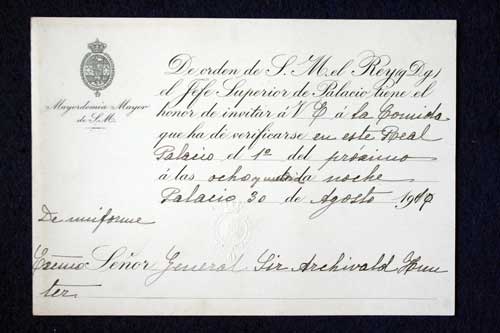 Mayordomía Mayor
de S.M.
De orden de S. M. el Rey (q. D. g.)
el Jefe Superior de Palacio tiene el
honor de invitar á V E á la Comida
que ha de verificarse en este Real
Palacio el 1º del próximo
á las ocho y media noche
Palacio 30 de Agosto
De uniforme
Excmo Señor General Sir Archivald Hun
ter